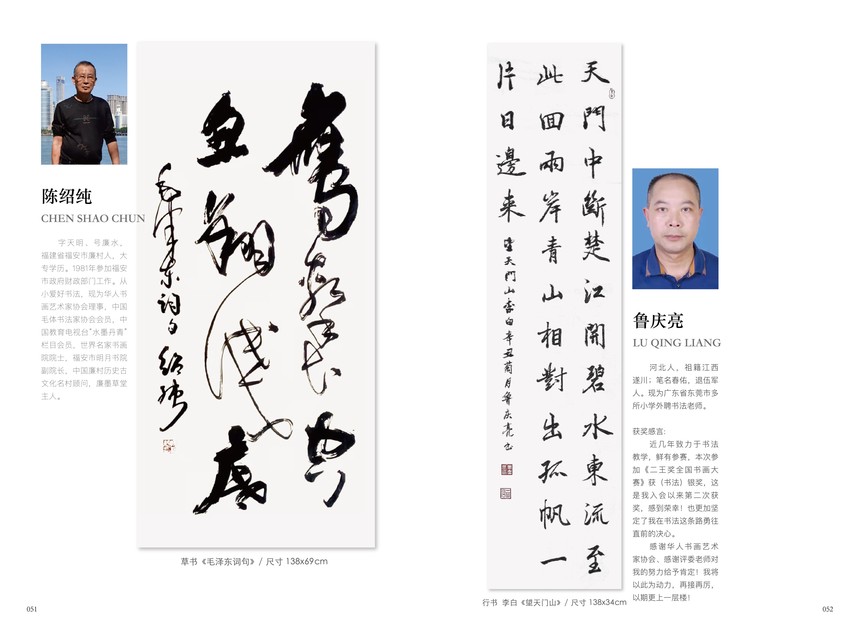 陈绍纯
CHEN SHAO CHUN
字天明、号廉水,
福建省福安市廉村人,大
专学历。1981年参加福安
市政府财政部门工作。从
小爱好书法,现为华人书
画艺术家协会理事,中国
毛体书法家协会会员,中
国教育电视台“水墨丹青”
栏目会员,世界名家书画
院院士,福安市明月书院
副院长,中国廉村历史古
文化名村顾问,廉墨草堂
主人。
鷹擊長空
魚翔浅底
毛泽东词句 绍纯
草书《毛泽东词句》/ 尺寸 138x69cm
051
天門中斷楚江開碧水東流至
此囬兩岸青山相對出孤帆一
片日邊来
望天門山李白辛丑菊月鲁庆亮书
行书 李白《望天门山》/ 尺寸 138x34cm
鲁庆亮
LU QING LIANG
河北人,祖籍江西
遂川;笔名春佑,退伍军
人。现为广东省东莞市多
所小学外聘书法老师。
获奖感言:
近几年致力于书法
教学,鲜有参赛,本次参
加《二王奖全国书画大
赛》获(书法)银奖,这
是我入会以来第二次获
奖,感到荣幸!也更加坚
定了我在书法这条路勇往
直前的决心。
感谢华人书画艺术
家协会、感谢评委老师对
我的努力给予肯定!我将
以此为动力,再接再厉,
以期更上一层楼!
052